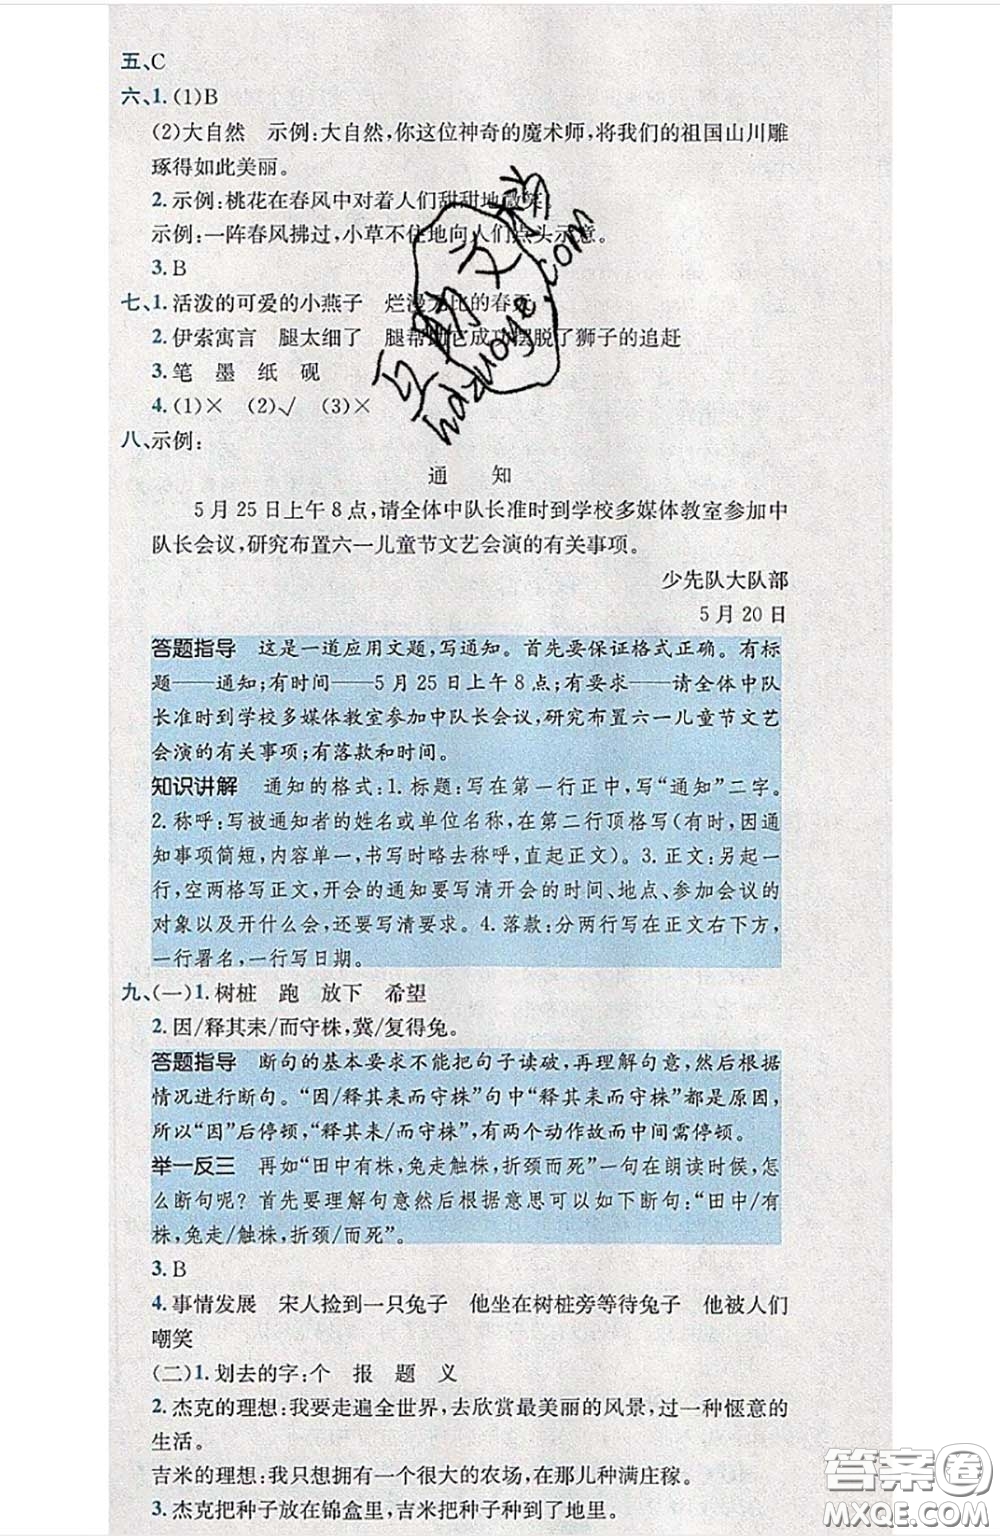 五、C
六、1.(1)B
(2)大自然 示例:大自然,你这位神奇的魔术师,将我们的祖国山川雕
琢得如此美丽。
2.示例:桃花在春风中对着人们甜甜地微笑。
示例:一阵春风拂过,小草不住地向人们点头示意。
3.B
七、1.活泼的可爱的小燕子 烂漫无比的春天
2.伊索寓言 腿太细了 腿帮助它成功摆脱了狮子的追赶
3.笔 墨 纸 砚
4.(1)× (2)√ (3)×
八、示例:
通 知
5月25日上午8点,请全体中队长准时到学校多媒体教室参加中
队长会议,研究布置六一儿童节文艺会演的有关事项。
少先队大队部
5月20日
答题指导 这是一道应用文题,写通知。首先要保证格式正确。有标
题——通知;有时间——5月25日上午8点;有要求——请全体中队
长准时到学校多媒体教室参加中队长会议,研究布置六一儿童节文艺
会演的有关事项;有落款和时间。
知识讲解 通知的格式:1.标题:写在第一行正中,写“通知”二字。
2.称呼:写被通知者的姓名或单位名称,在第二行顶格写(有时,因通
知事项简短,内容单一,书写时略去称呼,直起正文)。3.正文:另起一
行,空两格写正文,开会的通知要写清开会的时间、地点、参加会议的
对象以及开什么会,还要写清要求。4.落款:分两行写在正文右下方,
一行署名,一行写日期。
九、(一)1.树桩 跑 放下 希望
2.因/释其耒/而守株,冀/复得兔。
答题指导 断句的基本要求不能把句子读破,再理解句意,然后根据
情况进行断句。“因/释其耒而守株”句中“释其耒而守株”都是原因,
所以“因”后停顿,“释其耒/而守株”,有两个动作故而中间需停顿。
举一反三 再如“田中有株,兔走触株,折颈而死”一句在朗读时候,怎
么断句呢？首先要理解句意然后根据意思可以如下断句:“田中/有
株,兔走/触株,折颈/而死”。
3.B
4.事情发展 宋人捡到一只兔子 他坐在树桩旁等待兔子 他被人们
嘲笑
(二)1.划去的字:个 报 题 义
2.杰克的理想:我要走遍全世界,去欣赏最美丽的风景,过一种惬意的
生活。
吉米的理想:我只想拥有一个很大的农场,在那里种满庄稼。
3.杰克把种子放在锦盒里,吉米把种子种到了地里。
答案圈
MXQE.COM